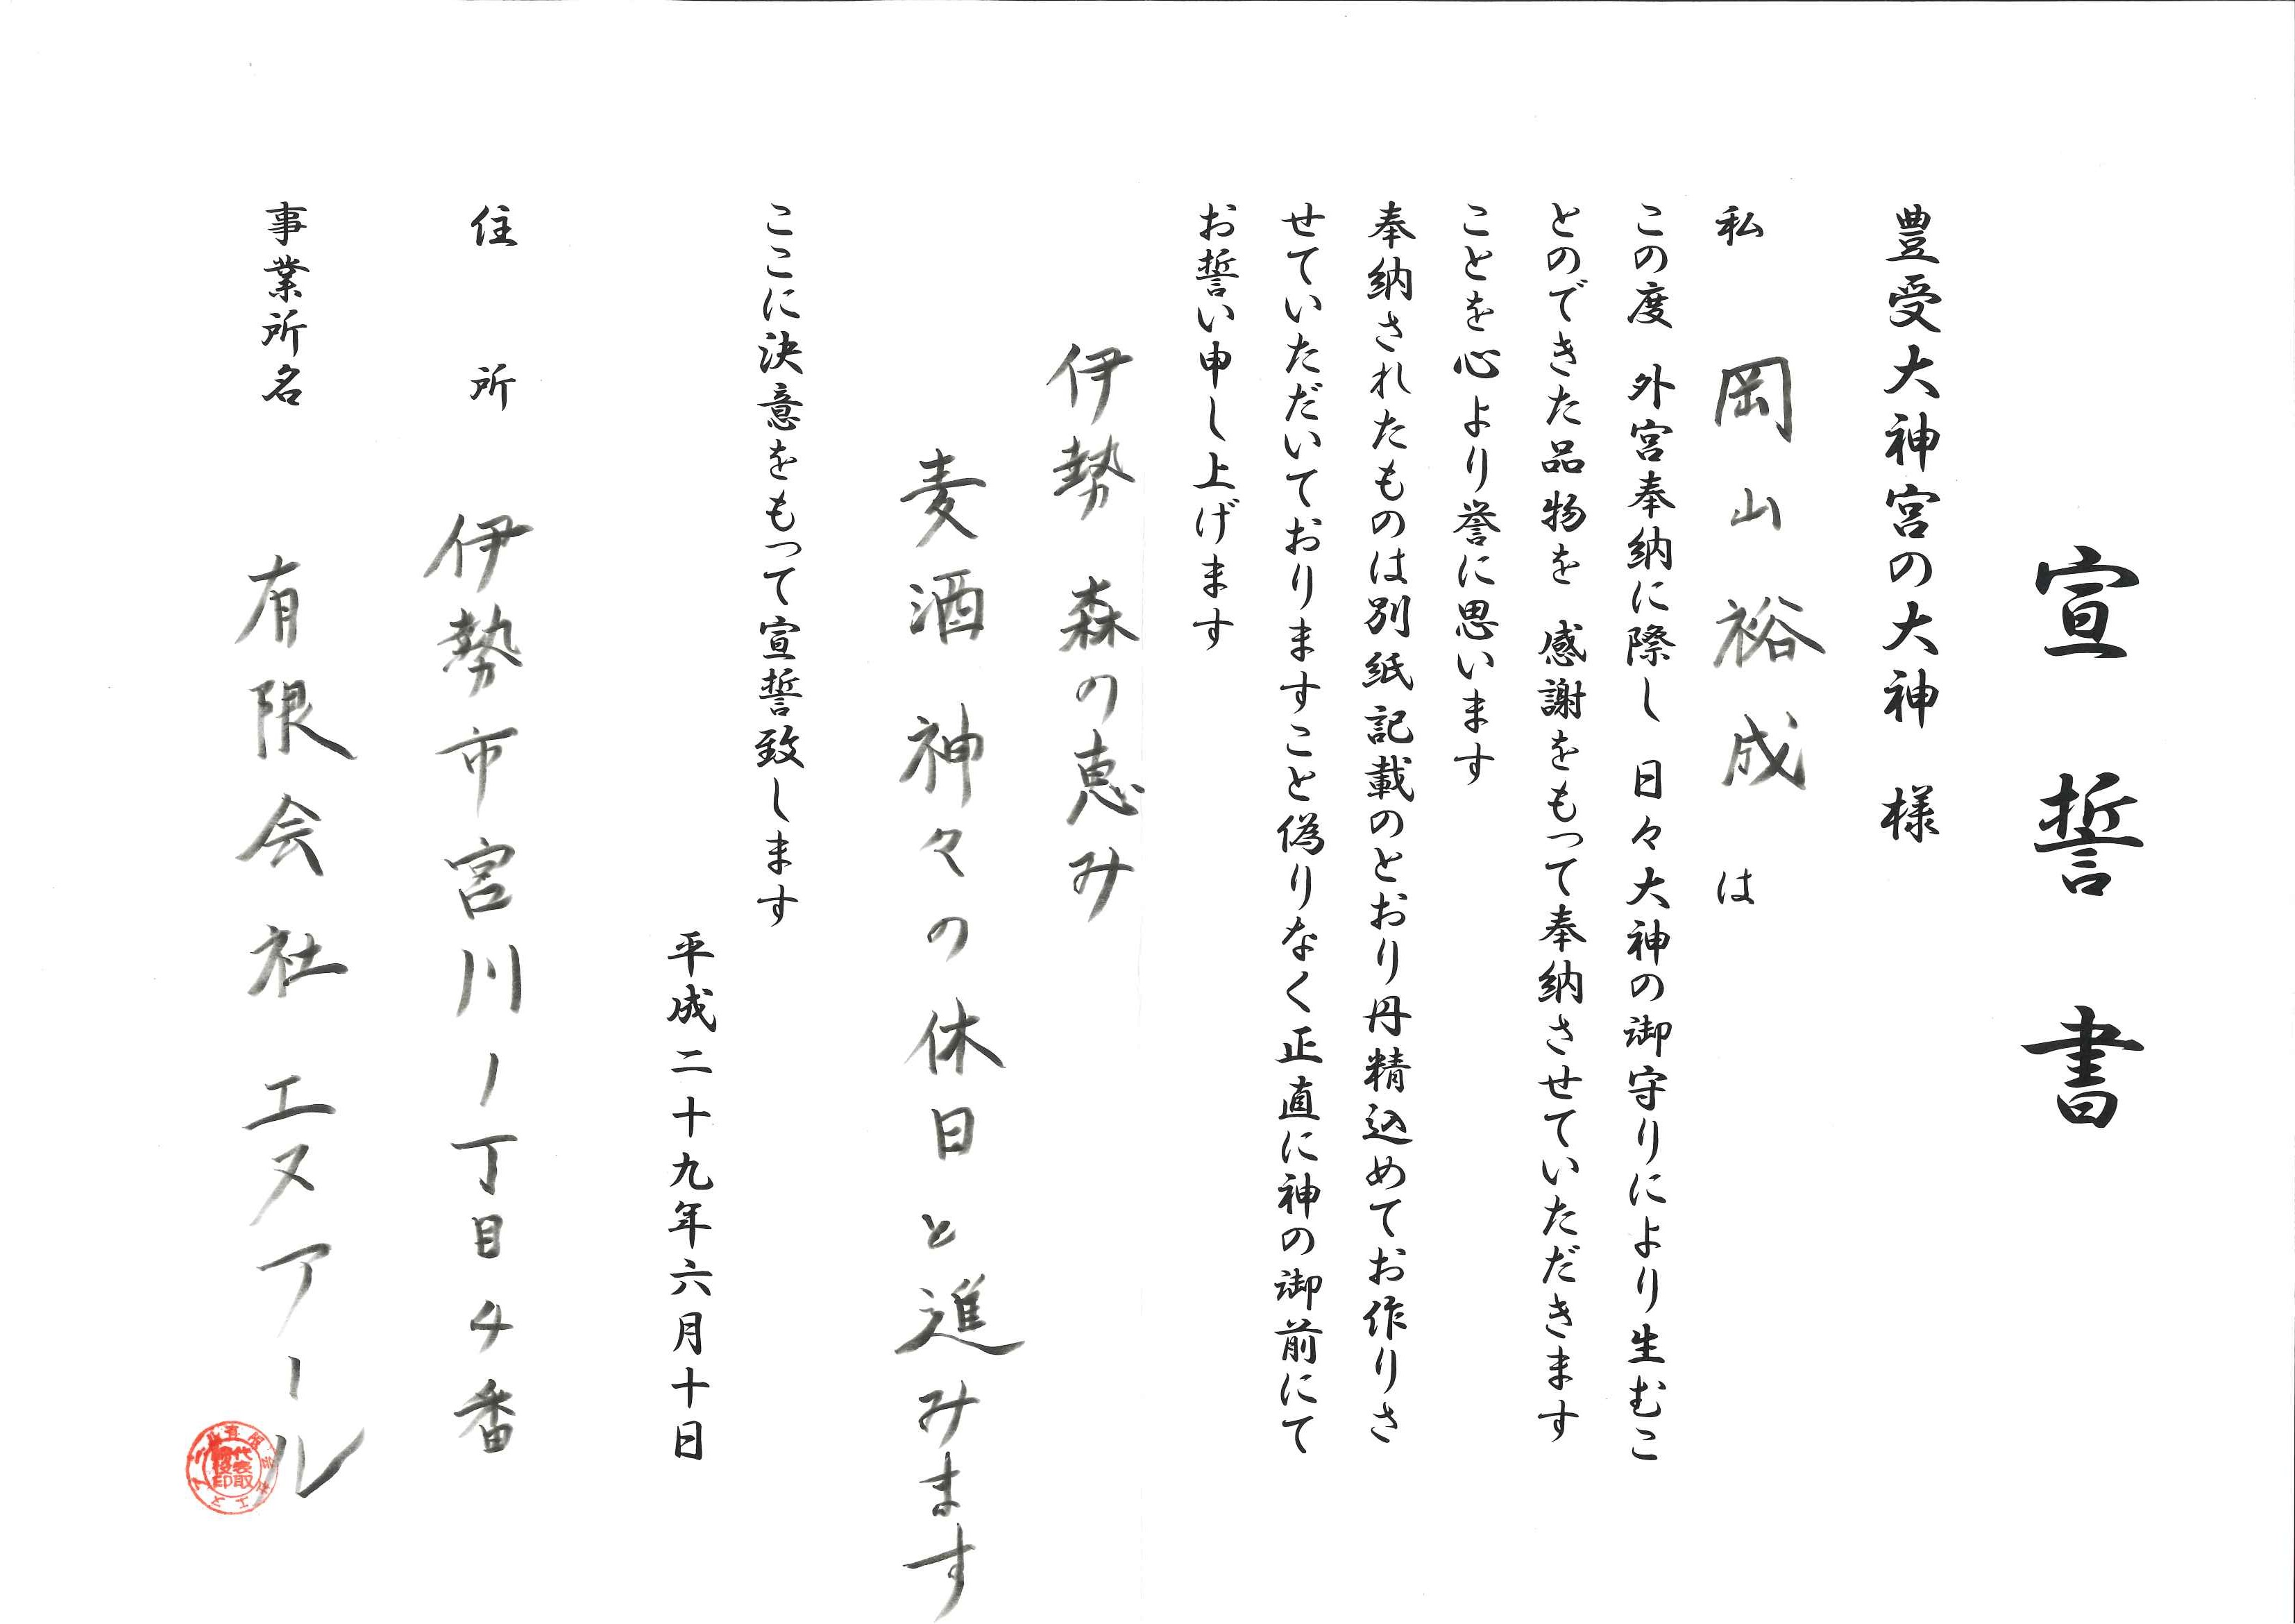 宣誓書
豊受大神宮の大神 様
私 岡山裕成 は
この度 外宮奉納に際し 日々大神の御守りにより生むこ
とのできた品物を 感謝をもって奉納させていただきます
ことを心より誉に思います
奉納されたものは別紙記載のとおり丹精込めてお作りさ
せていただいておりますこと偽りなく正直に神の御前にて
お誓い申し上げます
伊勢 森の恵み
麦酒神々の休日と進みます
ここに決意をもって宣誓致します
平成二十九年六月十日
住 所 伊勢市宮川1丁目4番
事業所名 有限会社エヌアール
代表取締役印